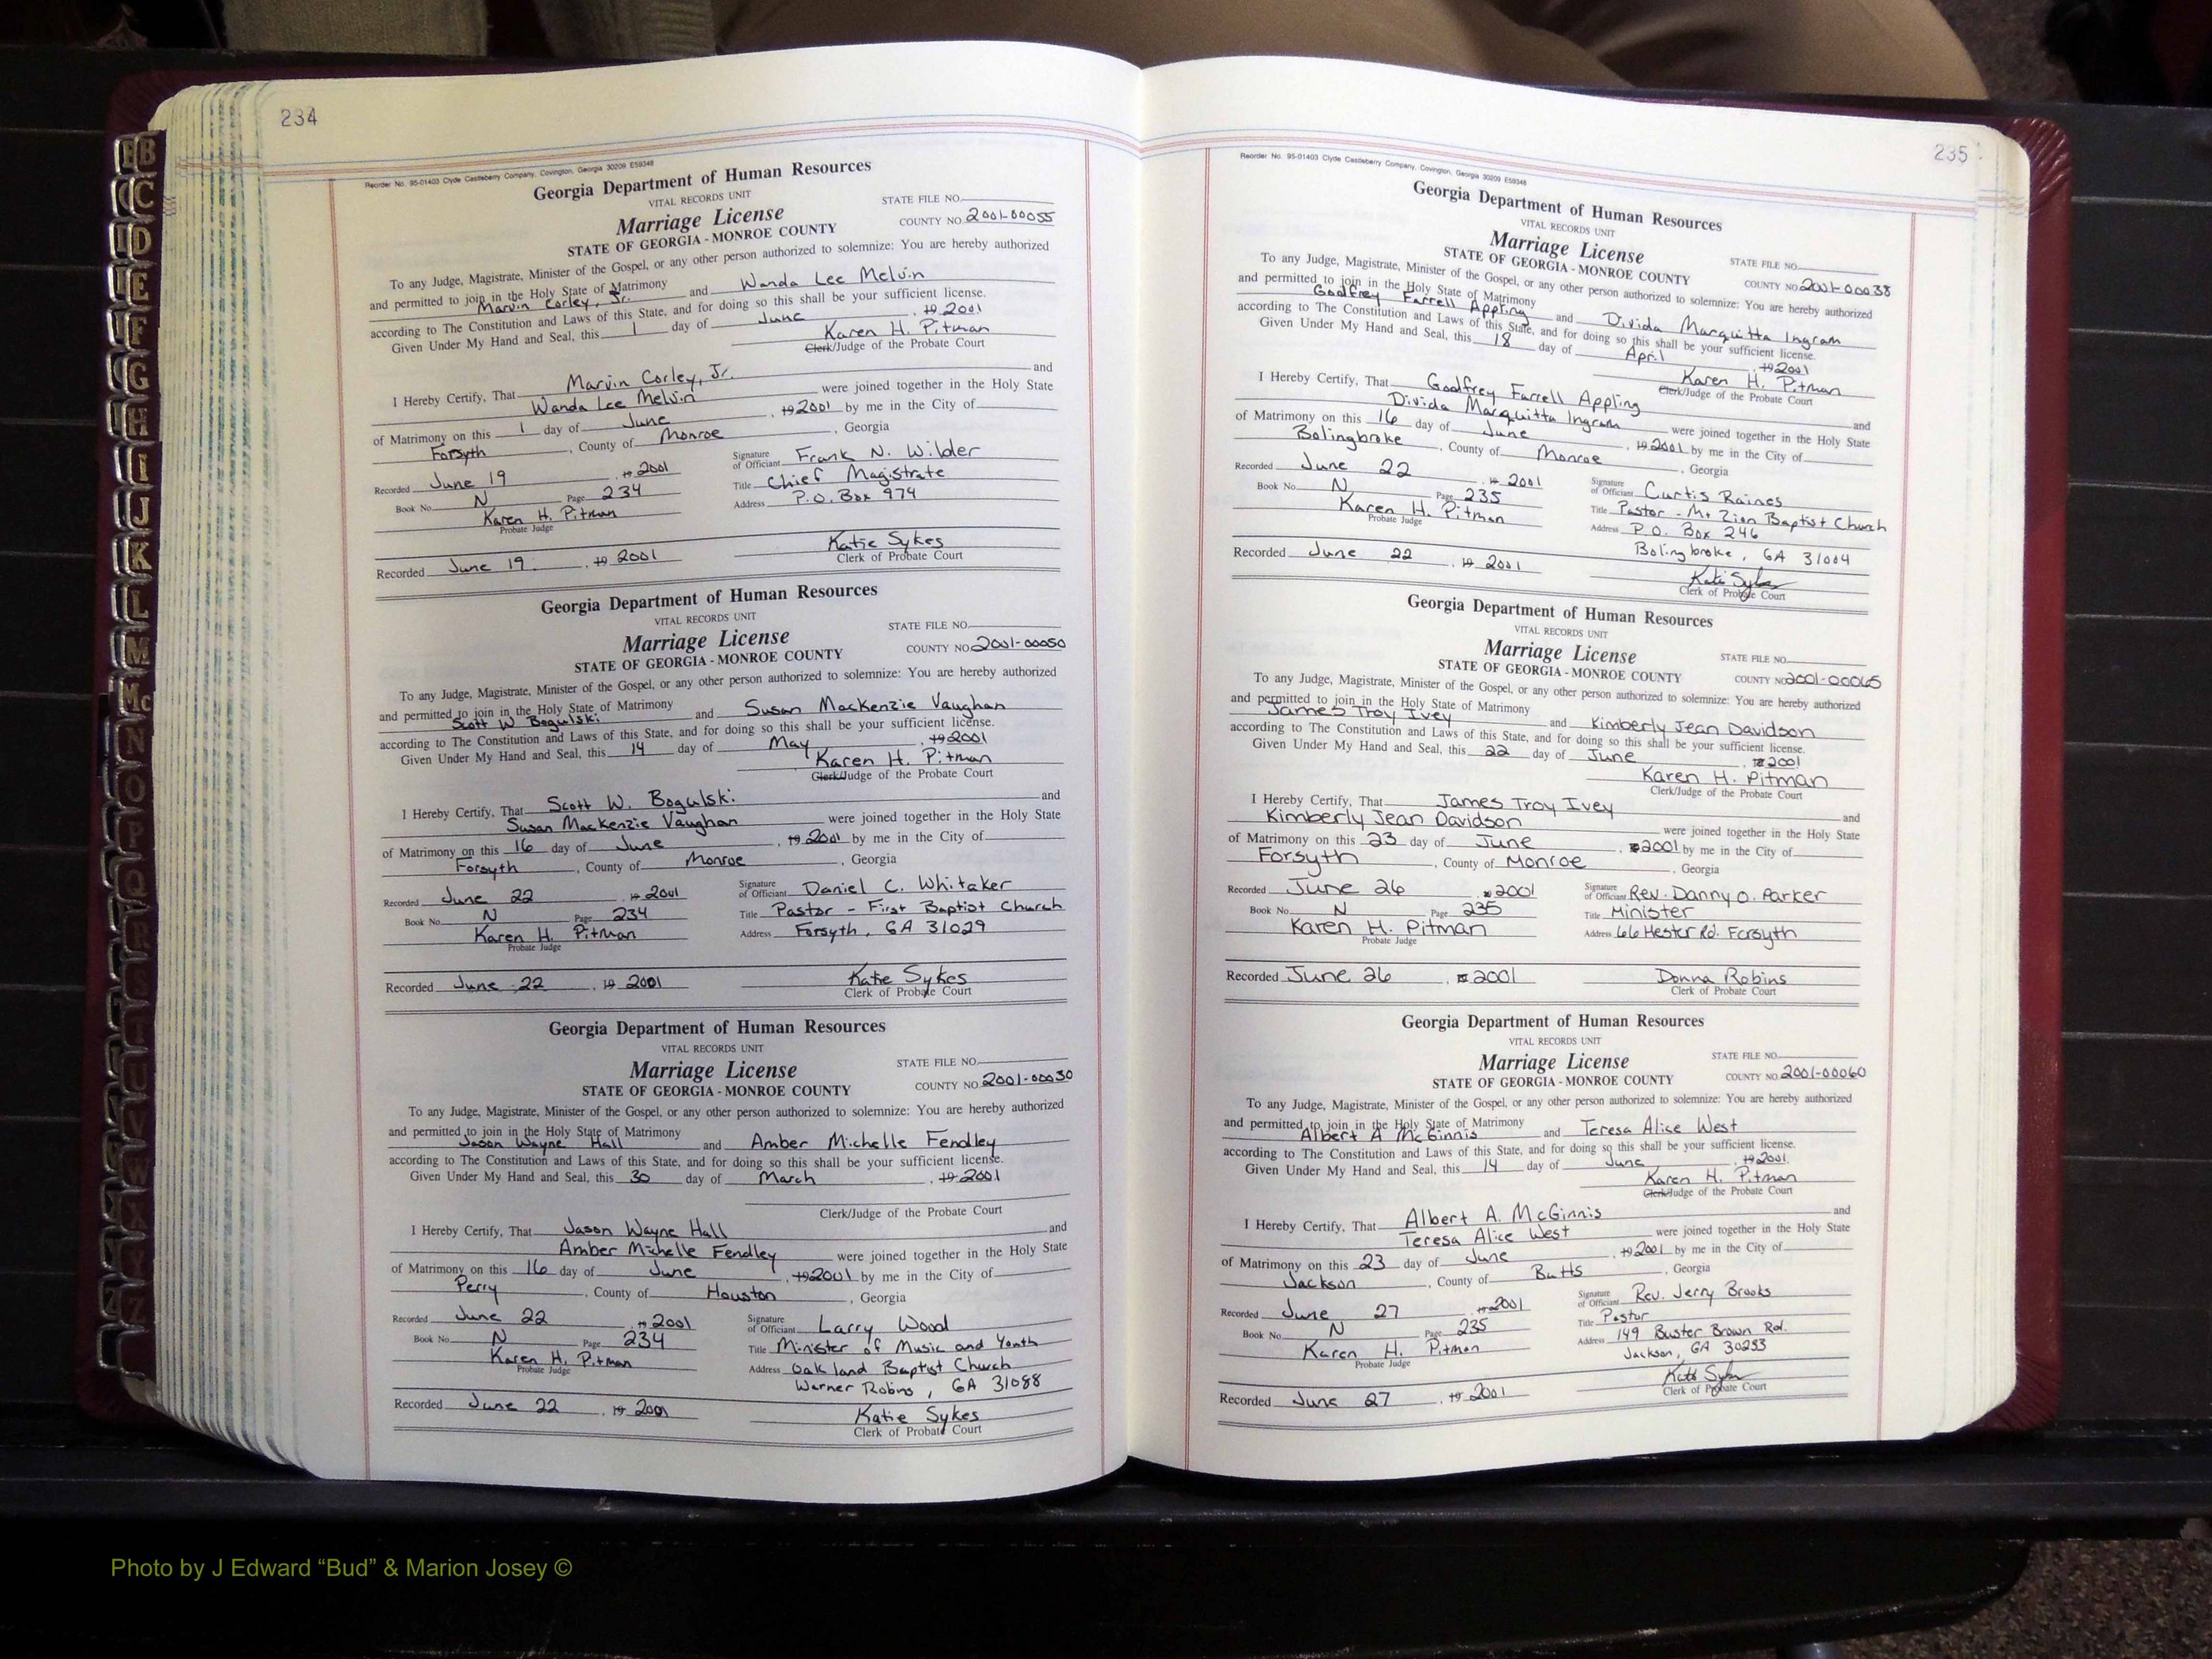 234
Reorder No. 95-01403 Clyde Castleberry Company, Covington, Georgia 30209 E59348
Georgia Department of Human Resources
VITAL RECORDS UNIT
Marriage License
STATE OF GEORGIA - MONROE COUNTY
STATE FILE NO.
COUNTY NO. 2001-00055
To any Judge, Magistrate, Minister of the Gospel, or any other person authorized to solemnize: You are hereby authorized
and permitted to join in the Holy State of Matrimony
Marvin Corley, Jr. and Wanda Lee Melvin
according to The Constitution and Laws of this State, and for doing so this shall be your sufficient license.
Given Under My Hand and Seal, this 1 day of June, 19 2001
Karen H. Pitman
Clerk/Judge of the Probate Court
I Hereby Certify, That Marvin Corley, Jr. and
Wanda Lee Melvin were joined together in the Holy State
of Matrimony on this 1 day of June, 19 2001 by me in the City of
Forsyth, County of Monroe, Georgia
Recorded June 19, 19 2001
Book No. N Page 234
Karen H. Pitman
Probate Judge
Signature of Officiant Frank N. Wilder
Title Chief Magistrate
Address P.O. Box 974
Recorded June 19, 19 2001
Katie Sykes
Clerk of Probate Court
Georgia Department of Human Resources
VITAL RECORDS UNIT
Marriage License
STATE OF GEORGIA - MONROE COUNTY
STATE FILE NO.
COUNTY NO. 2001-00050
To any Judge, Magistrate, Minister of the Gospel, or any other person authorized to solemnize: You are hereby authorized
and permitted to join in the Holy State of Matrimony
Scott W Bogulski and Susan MacKenzie Vaughan
according to The Constitution and Laws of this State, and for doing so this shall be your sufficient license.
Given Under My Hand and Seal, this 14 day of May, 19 2001
Karen H. Pitman
Clerk/Judge of the Probate Court
I Hereby Certify, That Scott W. Bogulski and
Susan MacKenzie Vaughan were joined together in the Holy State
of Matrimony on this 16 day of June, 19 2001 by me in the City of
Forsyth, County of Monroe, Georgia
Recorded June 22, 19 2001
Book No. N Page 234
Karen H. Pitman
Probate Judge
Signature of Officiant Daniel C. Whitaker
Title Pastor - First Baptist Church
Address Forsyth, GA 31029
Recorded June 22, 19 2001
Katie Sykes
Clerk of Probate Court
Georgia Department of Human Resources
VITAL RECORDS UNIT
Marriage License
STATE OF GEORGIA - MONROE COUNTY
STATE FILE NO.
COUNTY NO. 2001-00030
To any Judge, Magistrate, Minister of the Gospel, or any other person authorized to solemnize: You are hereby authorized
and permitted to join in the Holy State of Matrimony
Jason Wayne Hall and Amber Michelle Fendley
according to The Constitution and Laws of this State, and for doing so this shall be your sufficient license.
Given Under My Hand and Seal, this 30 day of March, 19 2001
Clerk/Judge of the Probate Court
I Hereby Certify, That Jason Wayne Hall and
Amber Michelle Fendley were joined together in the Holy State
of Matrimony on this 16 day of June, 19 2001 by me in the City of
Perry, County of Houston, Georgia
Recorded June 22, 19 2001
Book No. N Page 234
Karen H. Pitman
Probate Judge
Signature of Officiant Larry Wood
Title Minister of Music and Youth
Address Oakland Baptist Church
Warner Robins, GA 31088
Recorded June 22, 19 2001
Katie Sykes
Clerk of Probate Court
235
Reorder No. 95-01403 Clyde Castleberry Company, Covington, Georgia 30209 E59348
Georgia Department of Human Resources
VITAL RECORDS UNIT
Marriage License
STATE OF GEORGIA - MONROE COUNTY
STATE FILE NO.
COUNTY NO. 2001-00038
To any Judge, Magistrate, Minister of the Gospel, or any other person authorized to solemnize: You are hereby authorized
and permitted to join in the Holy State of Matrimony
Godfrey Farrell Appling and Divida Marquitta Ingram
according to The Constitution and Laws of this State, and for doing so this shall be your sufficient license.
Given Under My Hand and Seal, this 18 day of April, 19 2001
Karen H. Pitman
Clerk/Judge of the Probate Court
I Hereby Certify, That Godfrey Farrell Appling and
Divida Marquitta Ingram were joined together in the Holy State
of Matrimony on this 16 day of June, 19 2001 by me in the City of
Bolingbroke, County of Monroe, Georgia
Recorded June 22, 19 2001
Book No. N Page 235
Karen H. Pitman
Probate Judge
Signature of Officiant Curtis Raines
Title Pastor - Mt Zion Baptist Church
Address P.O. Box 246
Bolingbroke, GA 31004
Recorded June 22, 19 2001
Katie Sykes
Clerk of Probate Court
Georgia Department of Human Resources
VITAL RECORDS UNIT
Marriage License
STATE OF GEORGIA - MONROE COUNTY
STATE FILE NO.
COUNTY NO. 2001-00065
To any Judge, Magistrate, Minister of the Gospel, or any other person authorized to solemnize: You are hereby authorized
and permitted to join in the Holy State of Matrimony
James Troy Ivey and Kimberly Jean Davidson
according to The Constitution and Laws of this State, and for doing so this shall be your sufficient license.
Given Under My Hand and Seal, this 22 day of June, 2001
Karen H. Pitman
Clerk/Judge of the Probate Court
I Hereby Certify, That James Troy Ivey and
Kimberly Jean Davidson were joined together in the Holy State
of Matrimony on this 23 day of June, 2001 by me in the City of
Forsyth, County of Monroe, Georgia
Recorded June 26, 2001
Book No. N Page 235
Karen H. Pitman
Probate Judge
Signature of Officiant Rev. Danny O. Parker
Title Minister
Address 66 Hester Rd. Forsyth
Recorded June 26, 2001
Donna Robins
Clerk of Probate Court
Georgia Department of Human Resources
VITAL RECORDS UNIT
Marriage License
STATE OF GEORGIA - MONROE COUNTY
STATE FILE NO.
COUNTY NO. 2001-00060
To any Judge, Magistrate, Minister of the Gospel, or any other person authorized to solemnize: You are hereby authorized
and permitted to join in the Holy State of Matrimony
Albert A McGinnis and Teresa Alice West
according to The Constitution and Laws of this State, and for doing so this shall be your sufficient license.
Given Under My Hand and Seal, this 14 day of June, 19 2001
Karen H. Pitman
Clerk/Judge of the Probate Court
I Hereby Certify, That Albert A. McGinnis and
Teresa Alice West were joined together in the Holy State
of Matrimony on this 23 day of June, 19 2001 by me in the City of
Jackson, County of Butts, Georgia
Recorded June 27, 19 2001
Book No. N Page 235
Karen H. Pitman
Probate Judge
Signature of Officiant Rev. Jerry Brooks
Title Pastor
Address 149 Buster Brown Rd.
Jackson, GA 30233
Recorded June 27, 19 2001
Katie Sykes
Clerk of Probate Court
B
C
D
E
F
G
H
I
J
K
L
M
Mc
N
O
P
Q
R
Photo by J Edward “Bud” & Marion Josey ©